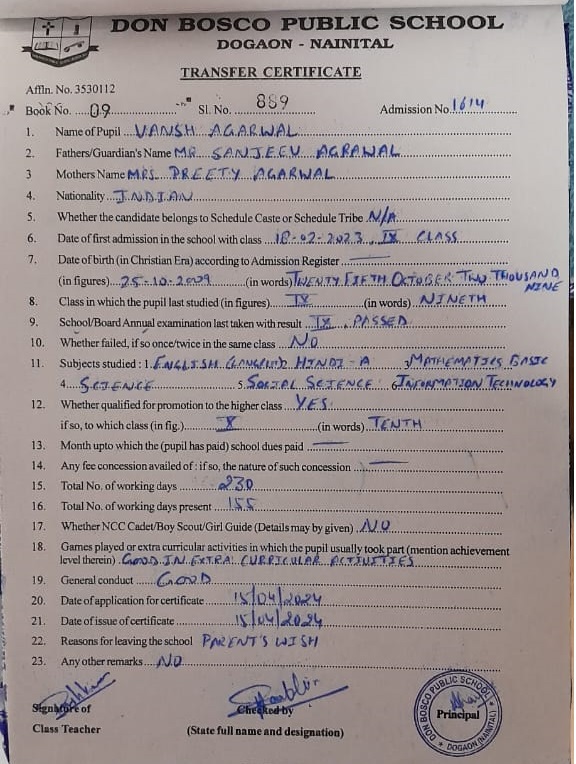 DON BOSCO PUBLIC SCHOOL
DOGAON - NAINITAL
TRANSFER CERTIFICATE
Affln. No. 3530112
Book No. 09 Sl. No. 889 Admission No. 1614
1. Name of Pupil VANSH AGARWAL
2. Fathers/Guardian's Name MR. SANJEEV AGRAWAL
3 Mothers Name MRS. PREETY AGARWAL
4. Nationality INDIAN
5. Whether the candidate belongs to Schedule Caste or Schedule Tribe N/A
6. Date of first admission in the school with class 18-02-2023, IX CLASS
7. Date of birth (in Christian Era) according to Admission Register
(in figures) 25-10-2009 (in words) TWENTY FIFTH OCTOBER TWO THOUSAND
NINE
8. Class in which the pupil last studied (in figures) IX (in words) NINETH
9. School/Board Annual examination last taken with result IX, PASSED
10. Whether failed, if so once/twice in the same class NO
11. Subjects studied : 1. ENGLISH HINDI-A MATHEMATICS BASIC
4. SCIENCE 5. SOCIAL SCIENCE 6 INFORMATION TECHNOLOGY
12. Whether qualified for promotion to the higher class YES
if so, to which class (in fig.) X (in words) TENTH
13. Month upto which the (pupil has paid) school dues paid
14. Any fee concession availed of : if so, the nature of such concession
15. Total No. of working days 230
16. Total No. of working days present 155
17. Whether NCC Cadet/Boy Scout/Girl Guide (Details may by given) NO
18. Games played or extra curricular activities in which the pupil usually took part (mention achievement
level therein) GOOD IN EXTRA CURRICULAR ACTIVITIES
19. General conduct GOOD
20. Date of application for certificate 15/04/2024
21. Date of issue of certificate 15/04/2024
22. Reasons for leaving the school PARENT'S WISH
23. Any other remarks NO
Signature of Checked by Principal
Class Teacher (State full name and designation)
DON BOSCO PUBLIC SCHOOL
DOGAON (NAINITAL)